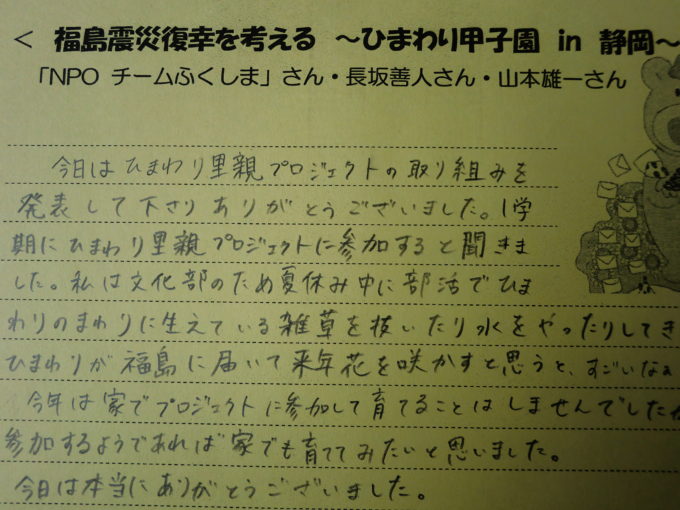 < 福島震災復幸を考える ～ひまわり甲子園 in 静岡～
「NPO チームふくしま」さん・長坂善人さん・山本雄一さん
今日はひまわり里親プロジェクトの取り組みを
発表して下さりありがとうございました。1学
期にひまわり里親プロジェクトに参加すると聞きま
した。私は文化部のため夏休み中に部活でひま
わりのまわりに生えている雑草を抜いたり水をやったりしてき
ひまわりが福島に届いて来年花を咲かすと思うと、すごいなぁ
今年は家でプロジェクトに参加して育てることはしませんでしたが
参加するようであれば家でも育ててみたいと思いました。
今日は本当にありがとうございました。